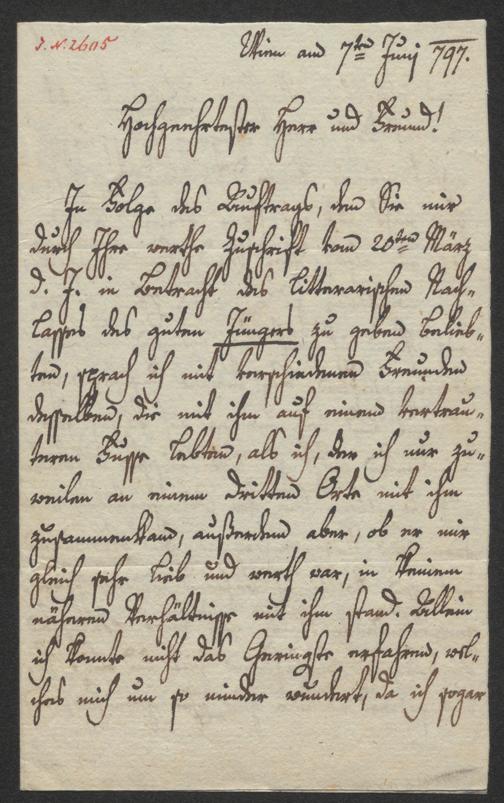 J. N. 2605
Wien am 7ten Junj 797.
Hochgeehrtester Herr und Freund!
In Folge des Auftrags, den Sie mir
durch Ihre werthe Zuschrift vom 20ten März
d. J. in Betracht des litterarischen Nach-
lasses des guten Jüngers zu geben belieb-
ten, sprach ich mit verschiedenen Freunden
desselben, die mit ihm auf einem vertrau-
teren Fusse lebten, als ich, der ich nur zu-
weilen an einem dritten Orte mit ihm
zusammenkam, außerdem aber, ob er mir
gleich sehr lieb und werth war, in keinem
näheren Verhältnisse mit ihm stand. Allein
ich konnte nicht das Geringste erfahren, wel-
ches mich um so minder wundert, da ich sogar